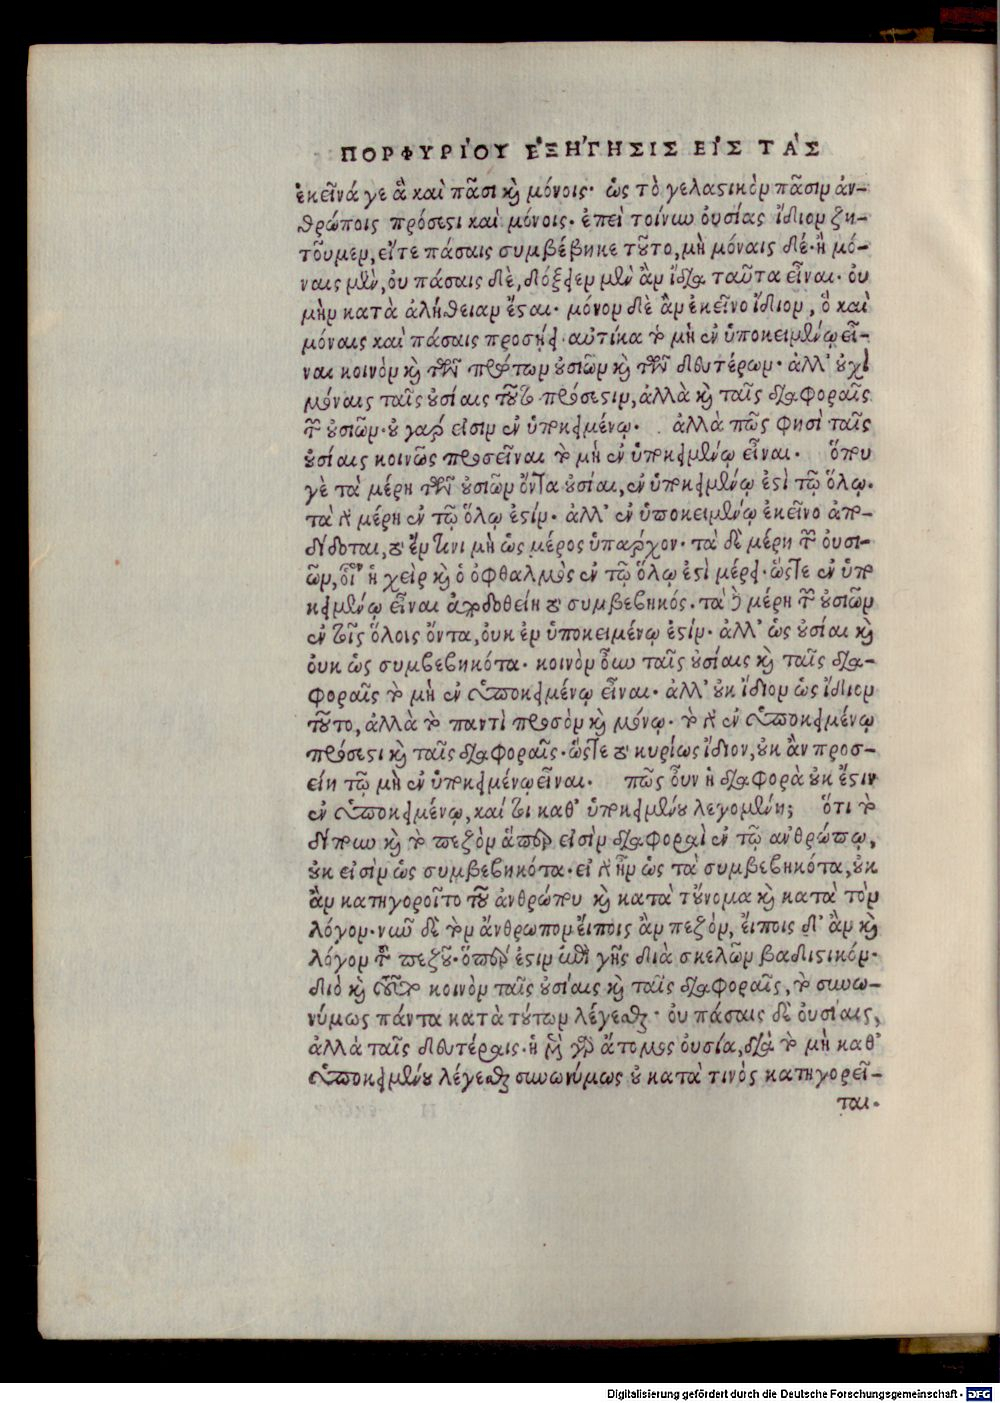 ΠΟΡΦΥΡΙ'ΟΥ Ε'ΞΗ'ΓΗΣΙΣ ΕΙ'Σ ΤΑ`Σ
ἐκεῖνά γε ἃ καὶ πᾶσι καὶ μόνοις· ὡς τὸ γελαστικὸν πᾶσιν ἀν-
θρώποις πρόσεστι καὶ μόνοις. ἐπεὶ τοίνυν οὐσίας ἴδιον ζη-
τοῦμεν, εἴτε πάσαις συμβέβηκε τοῦτο, μὴ μόναις δέ· ἢ μό-
ναις μὲν, οὐ πάσαις δὲ, δόξειεν μὲν ἂν ἴδια ταῦτα εἶναι. οὐ
μὴν κατὰ ἀλήθειαν ἔσται. μόνον δὲ ἂν ἐκεῖνο ἴδιον, ὃ καὶ
μόναις καὶ πάσαις προσῆν. αὐτίκα τὸ μὴ ἐν ὑποκειμένῳ εἶ-
ναι κοινὸν καὶ τῶν πρώτων οὐσιῶν καὶ τῶν δευτέρων. ἀλλ' οὐχὶ
μόναις ταῖς οὐσίαις τοῦτο πρόσεστιν, ἀλλὰ καὶ ταῖς διαφοραῖς
τῶν οὐσιῶν. οὐ γάρ εἰσιν ἐν ὑποκειμένῳ. ἀλλὰ πῶς φησὶ ταῖς
οὐσίαις κοινῶς προσεῖναι τὸ μὴ ἐν ὑποκειμένῳ εἶναι. ὅπου
γὲ τὰ μέρη τῶν οὐσιῶν ὄντα οὐσίαι, ἐν ὑποκειμένῳ ἐστὶ τῷ ὅλῳ.
τὰ γὰρ μέρη ἐν τῷ ὅλῳ ἐστίν. ἀλλ' ἐν ὑποκειμένῳ ἐκεῖνο ἀπο-
δίδοται, τὸ ἔν τινι μὴ ὡς μέρος ὑπάρχον. τὰ δὲ μέρη τῶν οὐσι-
ῶν, οἷον ἡ χεὶρ καὶ ὁ ὀφθαλμὸς ἐν τῷ ὅλῳ ἐστὶ μέρει. ὥστε ἐν ὑπο
κειμένῳ εἶναι ἀποδοθείη τὸ συμβεβηκός. τὰ δὲ μέρη τῶν οὐσιῶν
ἐν τοῖς ὅλοις ὄντα, οὐκ ἐν ὑποκειμένῳ ἐστίν. ἀλλ' ὡς οὐσίαι καὶ
οὐκ ὡς συμβεβηκότα. κοινὸν οὖν ταῖς οὐσίαις καὶ ταῖς δια-
φοραῖς τὸ μὴ ἐν ὑποκειμένῳ εἶναι. ἀλλ' οὐκ ἴδιον ὡς ἴδιον
τοῦτο, ἀλλὰ τὸ παντὶ προσὸν καὶ μόνῳ. τὸ γὰρ ἐν ὑποκειμένῳ
πρόσεστι καὶ ταῖς διαφοραῖς. ὥστε τὸ κυρίως ἴδιον, οὐκ ἂν προσ-
είη τῷ μὴ ἐν ὑποκειμένῳ εἶναι. πῶς οὖν ἡ διαφορὰ οὐκ ἔστιν
ἐν ὑποκειμένῳ, καί τοι καθ' ὑποκειμένου λεγομένη; ὅτι τὸ
δίπουν καὶ τὸ πεζὸν ἅπερ εἰσὶν διαφοραὶ ἐν τῷ ἀνθρώπῳ,
οὐκ εἰσὶν ὡς συμβεβηκότα. εἰ γὰρ ἦν ὡς τὰ συμβεβηκότα, οὐκ
ἂν κατηγοροῖτο τοῦ ἀνθρώπου καὶ κατὰ τοὔνομα καὶ κατὰ τὸν
λόγον. νῦν δὲ τὸν ἄνθρωπον εἴποις ἂν πεζὸν, εἴποις δ' ἂν καὶ
λόγον τοῦ πεζοῦ. ὅπερ ἐστὶν ἐπὶ γῆς διὰ σκελῶν βαδιστικόν.
διὸ καὶ τοῦτο κοινὸν ταῖς οὐσίαις καὶ ταῖς διαφοραῖς, τὸ συνω-
νύμως πάντα κατὰ τούτων λέγεσθαι. οὐ πάσαις δὲ οὐσίαις,
ἀλλὰ ταῖς δευτέραις. ἡ μὲν γὰρ ἄτομος οὐσία, διὰ τὸ μὴ καθ'
ὑποκειμένου λέγεσθαι συνωνύμως οὐ κατὰ τινὸς κατηγορεῖ-
ται.
Digitalisierung gefördert durch die Deutsche Forschungsgemeinschaft - DFG